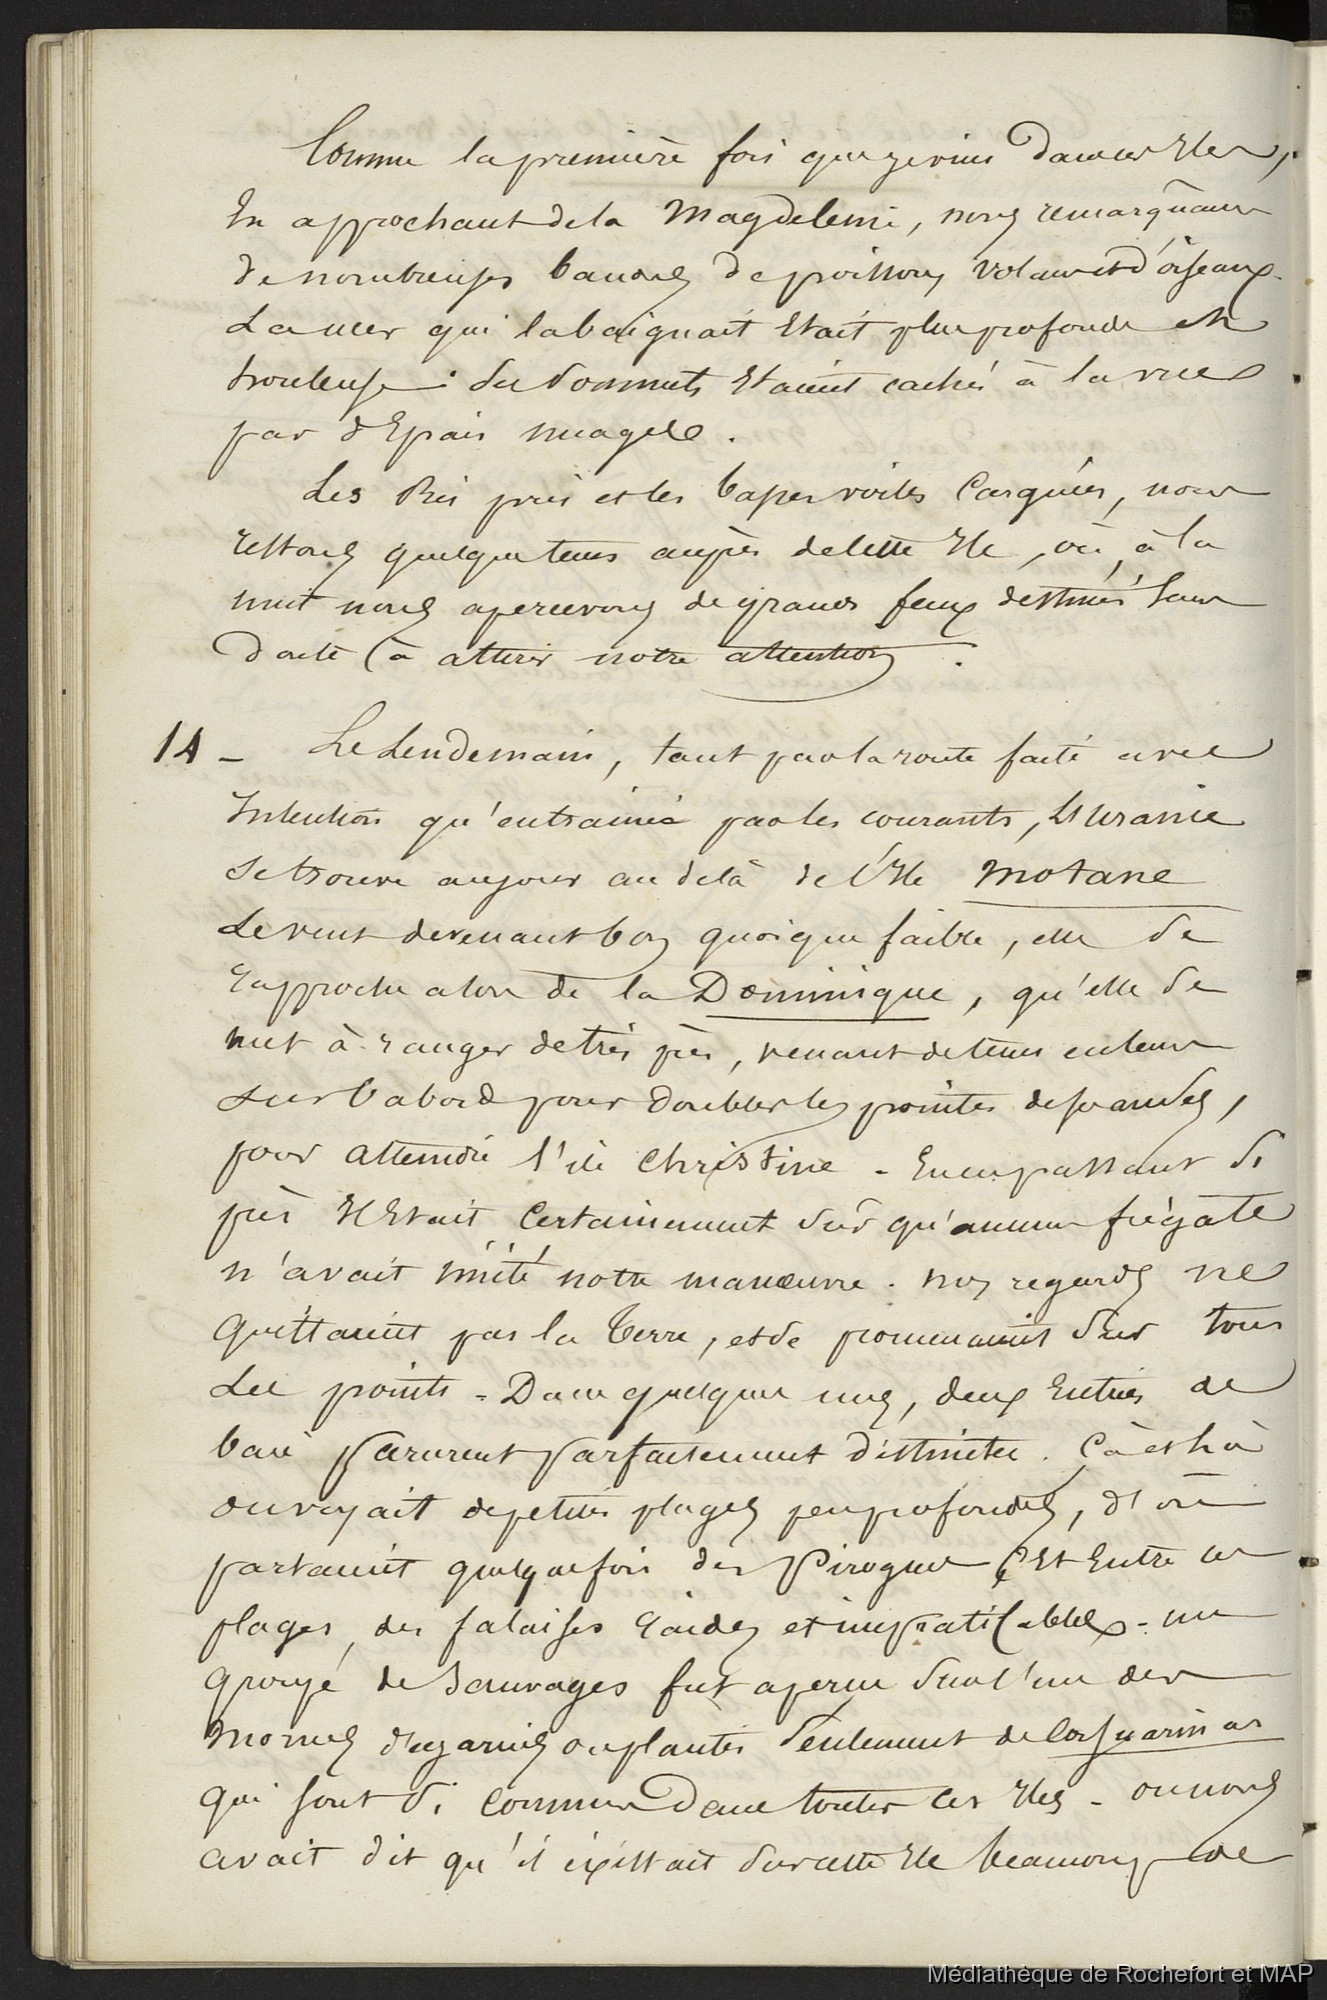 Comme la première fois que je vins dans ces Iles,
En approchant de la Magdeleine, nous remarquâmes
de nombreuses bandes de poissons volans et d'oiseaux.
La mer qui la baignait Etait plus profonde et
houleuse. Ses Sommets Etaient cachés à la vue
par d'Epais nuages.
Les Ris pris et les basses voiles Carguées, nous
restons quelque tems auprès de cette Ile, où, à la
nuit nous apercevons de grands feux destinés Sans
doute à attirer notre attention.
14 - Le Lendemain, tant par la route faite avec
Intention qu'entrainée par les courants, L'Uranie
Se trouve au jour au delà de l'Ile Motane
Le vent devenant bon quoique faible, elle Se
rapproche alors de la Dominique, qu'elle Se
met à ranger de très près, venant de tems en tems
Sur babord pour doubler les pointes de
pour atteindre l'ile Christine - En en passant Si
près Il Etait Certainement Sûr qu'aucune frégate
n'avait imité notre manœuvre. nos regards ne
quittaient pas la terre, et Se promenaient Sur tous
Les points - Dans quelques uns, deux Entrées de
baie parurent parfaitement distinctes. Çà et là
on voyait de petites plages peu profondes, d'où
partaient quelquefois des Pirogues Et Entre ces
plages, des falaises raides et impraticables - un
groupe de Sauvages fut aperçu Sur l'un des
mornes dégarnis ou plantés Seulement de Casuarinas
qui Sont Si communs Dans toutes ces Iles - on nous
avait dit qu'il existait Sur cette Ile beaucoup de
Médiathèque de Rochefort et MAP